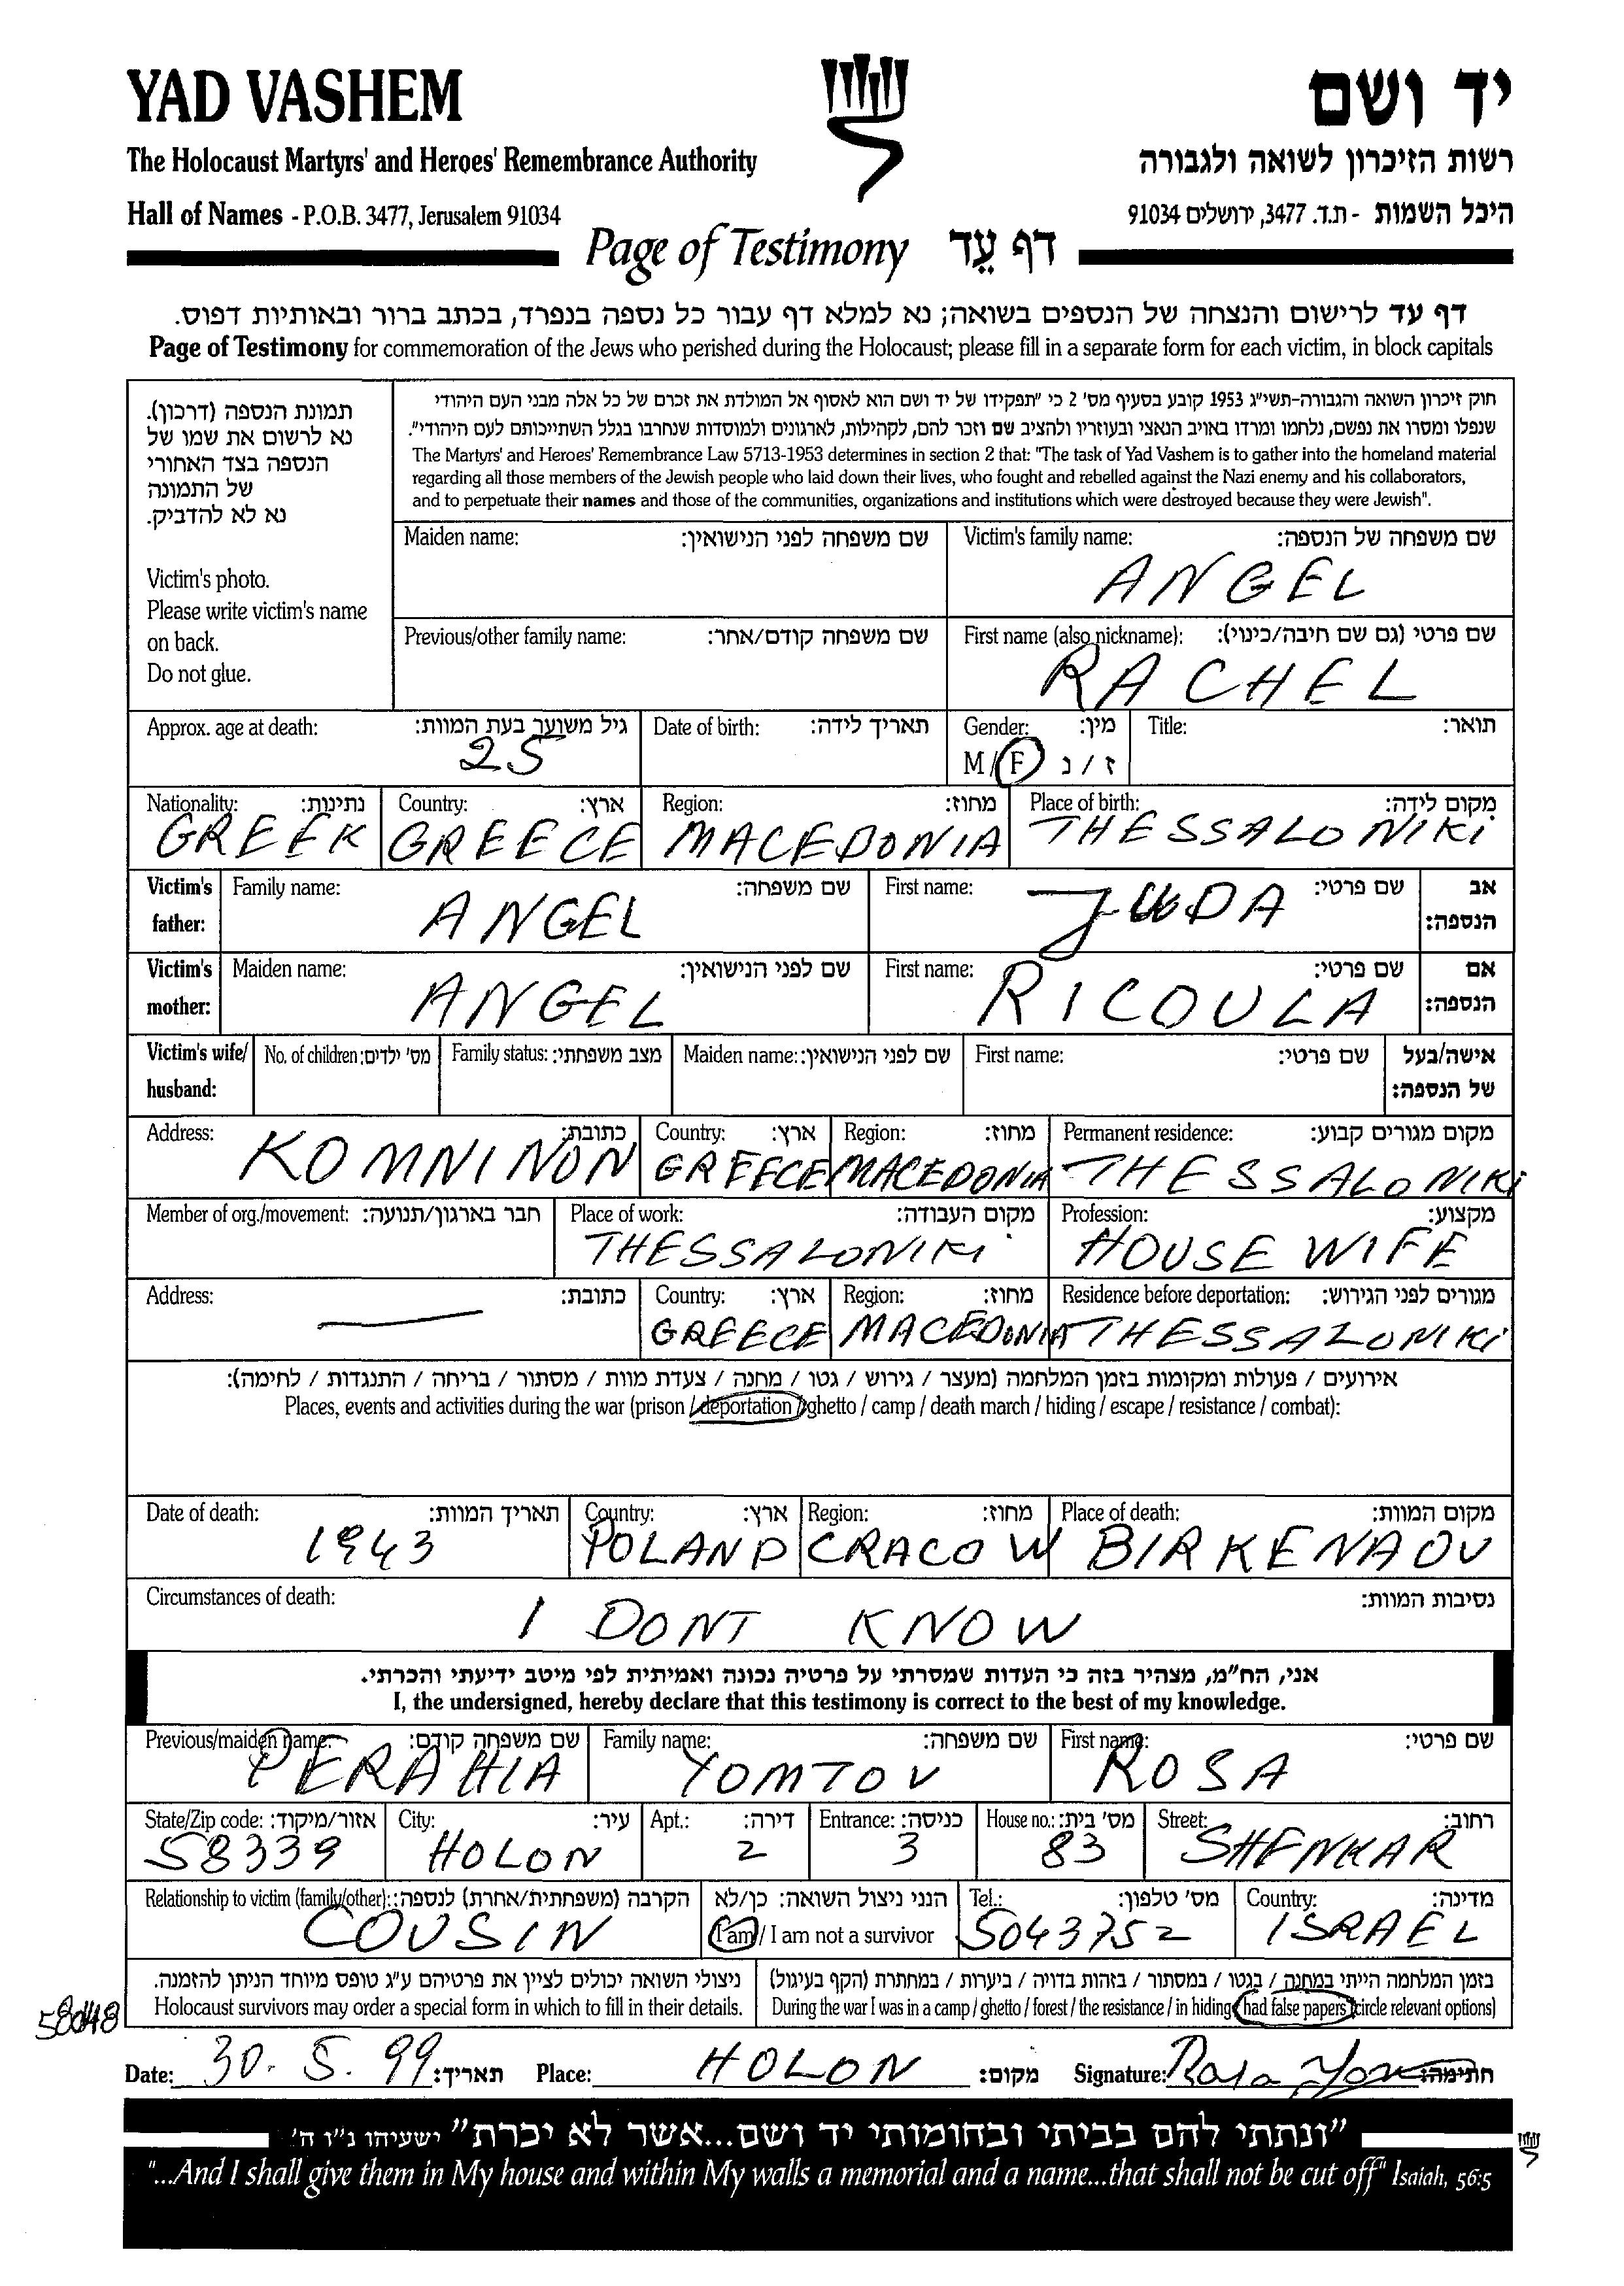 YAD VASHEM
יד ושם
The Holocaust Martyrs' and Heroes' Remembrance Authority
רשות הזיכרון לשואה ולגבורה
Hall of Names - P.O.B. 3477, Jerusalem 91034
היכל השמות - ת.ד. 3477, ירושלים 91034
Page of Testimony דף עֵד
דף עד לרישום והנצחה של הנספים בשואה; נא למלא דף עבור כל נספה בנפרד, בכתב ברור ובאותיות דפוס.
Page of Testimony for commemoration of the Jews who perished during the Holocaust; please fill in a separate form for each victim, in block capitals
תמונת הנספה (דרכון).
נא לרשום את שמו של
הנספה בצד האחורי
של התמונה
נא לא להדביק.
Victim's photo.
Please write victim's name
on back.
Do not glue.
חוק זיכרון השואה והגבורה-תשי"ג 1953 קובע בסעיף מס' 2 כי "תפקידו של יד ושם הוא לאסוף אל המולדת את זכרם של כל אלה מבני העם היהודי
שנפלו ומסרו את נפשם, נלחמו ומרדו באויב הנאצי ובעוזריו ולהציב שם וזכר להם, לקהילות, לארגונים ולמוסדות שנחרבו בגלל השתייכותם לעם היהודי".
The Martyrs' and Heroes' Remembrance Law 5713-1953 determines in section 2 that: "The task of Yad Vashem is to gather into the homeland material
regarding all those members of the Jewish people who laid down their lives, who fought and rebelled against the Nazi enemy and his collaborators,
and to perpetuate their names and those of the communities, organizations and institutions which were destroyed because they were Jewish".
Maiden name: שם משפחה לפני הנישואין:
Victim's family name: שם משפחה של הנספה:
ANGEL
Previous/other family name: שם משפחה קודם/אחר:
First name (also nickname): שם פרטי (גם שם חיבה/כינוי):
RACHEL
Approx. age at death: גיל משוער בעת המוות:
25
Date of birth: תאריך לידה:
Gender: מין:
M / F ז / נ
Title: תואר:
Nationality: נתינות:
GREEK
Country: ארץ:
GREECE
Region: מחוז:
MACEDONIA
Place of birth: מקום לידה:
THESSALONIKI
Victim's father:
Family name: שם משפחה:
ANGEL
First name: שם פרטי:
JUDA
אב הנספה:
Victim's mother:
Maiden name: שם לפני הנישואין:
ANGEL
First name: שם פרטי:
RICOULA
אם הנספה:
Victim's wife/ husband:
No. of children: מס' ילדים:
Family status: מצב משפחתי:
Maiden name: שם לפני הנישואין:
First name: שם פרטי:
אישה/בעל של הנספה:
Address: כתובת:
KOMNINON
Country: ארץ:
GREECE
Region: מחוז:
MACEDONIA
Permanent residence: מקום מגורים קבוע:
THESSALONIKI
Member of org./movement: חבר בארגון/תנועה:
Place of work: מקום העבודה:
THESSALONIKI
Profession: מקצוע:
HOUSE WIFE
Address: כתובת:
Country: ארץ:
GREECE
Region: מחוז:
MACEDONIA
Residence before deportation: מגורים לפני הגירוש:
THESSALONIKI
אירועים / פעולות ומקומות בזמן המלחמה (מעצר / גירוש / גטו / מחנה / צעדת מוות / מסתור / בריחה / התנגדות / לחימה):
Places, events and activities during the war (prison / deportation / ghetto / camp / death march / hiding / escape / resistance / combat):
Date of death: תאריך המוות:
1943
Country: ארץ:
POLAND
Region: מחוז:
CRACOW
Place of death: מקום המוות:
BIRKENAOU
Circumstances of death: נסיבות המוות:
I DONT KNOW
אני, הח"מ, מצהיר בזה כי העדות שמסרתי על פרטיה נכונה ואמיתית לפי מיטב ידיעתי והכרתי.
I, the undersigned, hereby declare that this testimony is correct to the best of my knowledge.
Previous/maiden name: שם משפחה קודם:
PERAHIA
Family name: שם משפחה:
YOMTOV
First name: שם פרטי:
ROSA
State/Zip code: אזור/מיקוד:
58339
City: עיר:
HOLON
Apt.: דירה:
2
Entrance: כניסה:
3
House no.: מס' בית:
83
Street: רחוב:
SHENKAR
Relationship to victim (family/other): הקרבה (משפחתית/אחרת) לנספה:
COUSIN
הנני ניצול השואה: כן/לא
I am / I am not a survivor
Tel.: מס' טלפון:
5043752
Country: מדינה:
ISRAEL
ניצולי השואה יכולים לציין את פרטיהם ע"ג טופס מיוחד הניתן להזמנה.
Holocaust survivors may order a special form in which to fill in their details.
בזמן המלחמה הייתי במחנה / בגטו / במסתור / בזהות בדויה / ביערות / במחתרת (הקף בעיגול)
During the war I was in a camp / ghetto / forest / the resistance / in hiding / had false papers (circle relevant options)
Date: 30.5.99 תאריך:
Place: HOLON מקום:
Signature: Rosa Yom חתימה:
"ונתתי להם בביתי ובחומותי יד ושם...אשר לא יכרת" ישעיהו נ"ו ה'
"...And I shall give them in My house and within My walls a memorial and a name...that shall not be cut off" Isaiah, 56:5